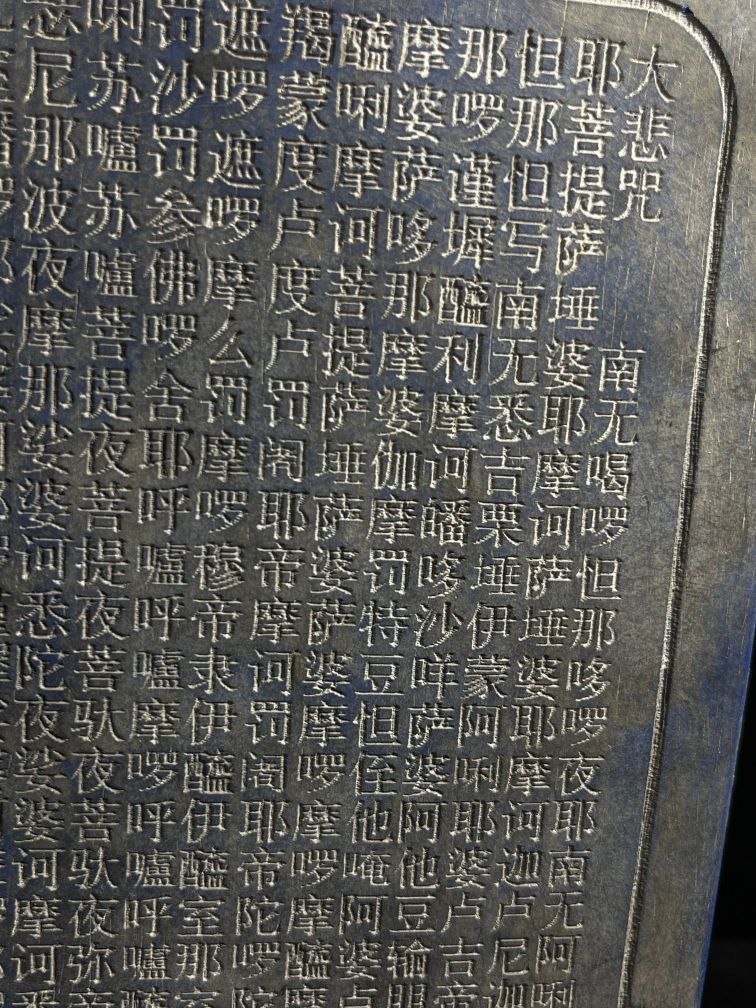 大悲咒
南无喝啰怛那哆啰夜耶南无阿唎
耶菩提萨埵婆耶摩诃萨埵婆耶摩诃迦卢尼迦
怛那怛写南无悉吉栗埵伊蒙阿唎耶婆卢吉帝
那啰谨墀醯利摩诃皤哆沙咩萨婆阿他豆输朋
摩婆萨哆那摩婆伽摩罚特豆怛侄他唵阿婆卢
醯唎摩诃菩提萨埵萨婆萨婆摩啰摩啰摩醯摩
羯蒙度卢度卢罚阇耶帝摩诃罚阇耶帝陀啰陀
遮啰遮啰摩么罚摩啰穆帝隶伊醯伊醯室那室
罚沙罚参佛啰舍耶呼嚧呼嚧摩啰呼嚧呼嚧醯
唎苏嚧苏嚧菩提夜菩提夜菩驮夜菩驮夜弥帝
悉尼那波夜摩那娑婆诃悉陀夜娑婆诃摩诃悉